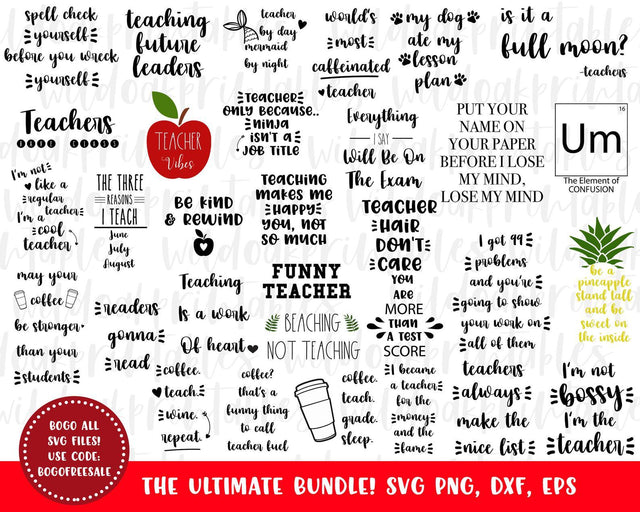 spell check
yourself
before you wreck
yourself
teaching
future
leaders
teacher
by day
mermaid
by night
world's
most
caffeinated
teacher
my dog
ate my
lesson
plan
is it a
full moon?
-teachers
Teachers
TEACHER
Vibes
Teacher
only because..
ninja
isn't a
job title
Everything
I SAY
Will Be On
The Exam
PUT YOUR
NAME ON
YOUR PAPER
BEFORE I LOSE
MY MIND,
LOSE MY MIND
16
Um
The Element of
CONFUSION
I'm not
like a
regular
teacher
I'm a
cool
teacher
THE THREE
REASONS
I TEACH
June
July
August
Be kind
& rewind
Teaching
makes me
happy
you, not
so much
Teacher
hair
don't
care
I got 99
problems
and you're
going to show
your work on
all of them
be a
pineapple
stand tall
and be
sweet on
the inside
may your
coffee
be stronger
than your
students
readers
gonna
read
Teaching
Is a work
Of heart
FUNNY
TEACHER
BEACHING
NOT TEACHING
YOU
ARE
MORE
THAN
A TEST
SCORE
coffee.
teach.
wine.
repeat.
coffee?
that's a
funny thing
to call
teacher fuel
coffee.
teach.
grade.
sleep.
I became
a teacher
for the
money
and the
fame
teachers
always
make the
nice list
I'm not
Bossy
I'm the
teacher
BOGO ALL
SVG FILES!
USE CODE:
BOGOFREESALE
THE ULTIMATE BUNDLE! SVG PNG, DXF, EPS